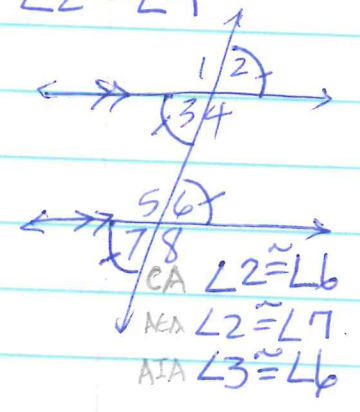 ∠2 ∠1
1 2
3 4
5 6
7 8
CA ∠2≅∠6
AEA ∠2≅∠7
AIA ∠3≅∠6